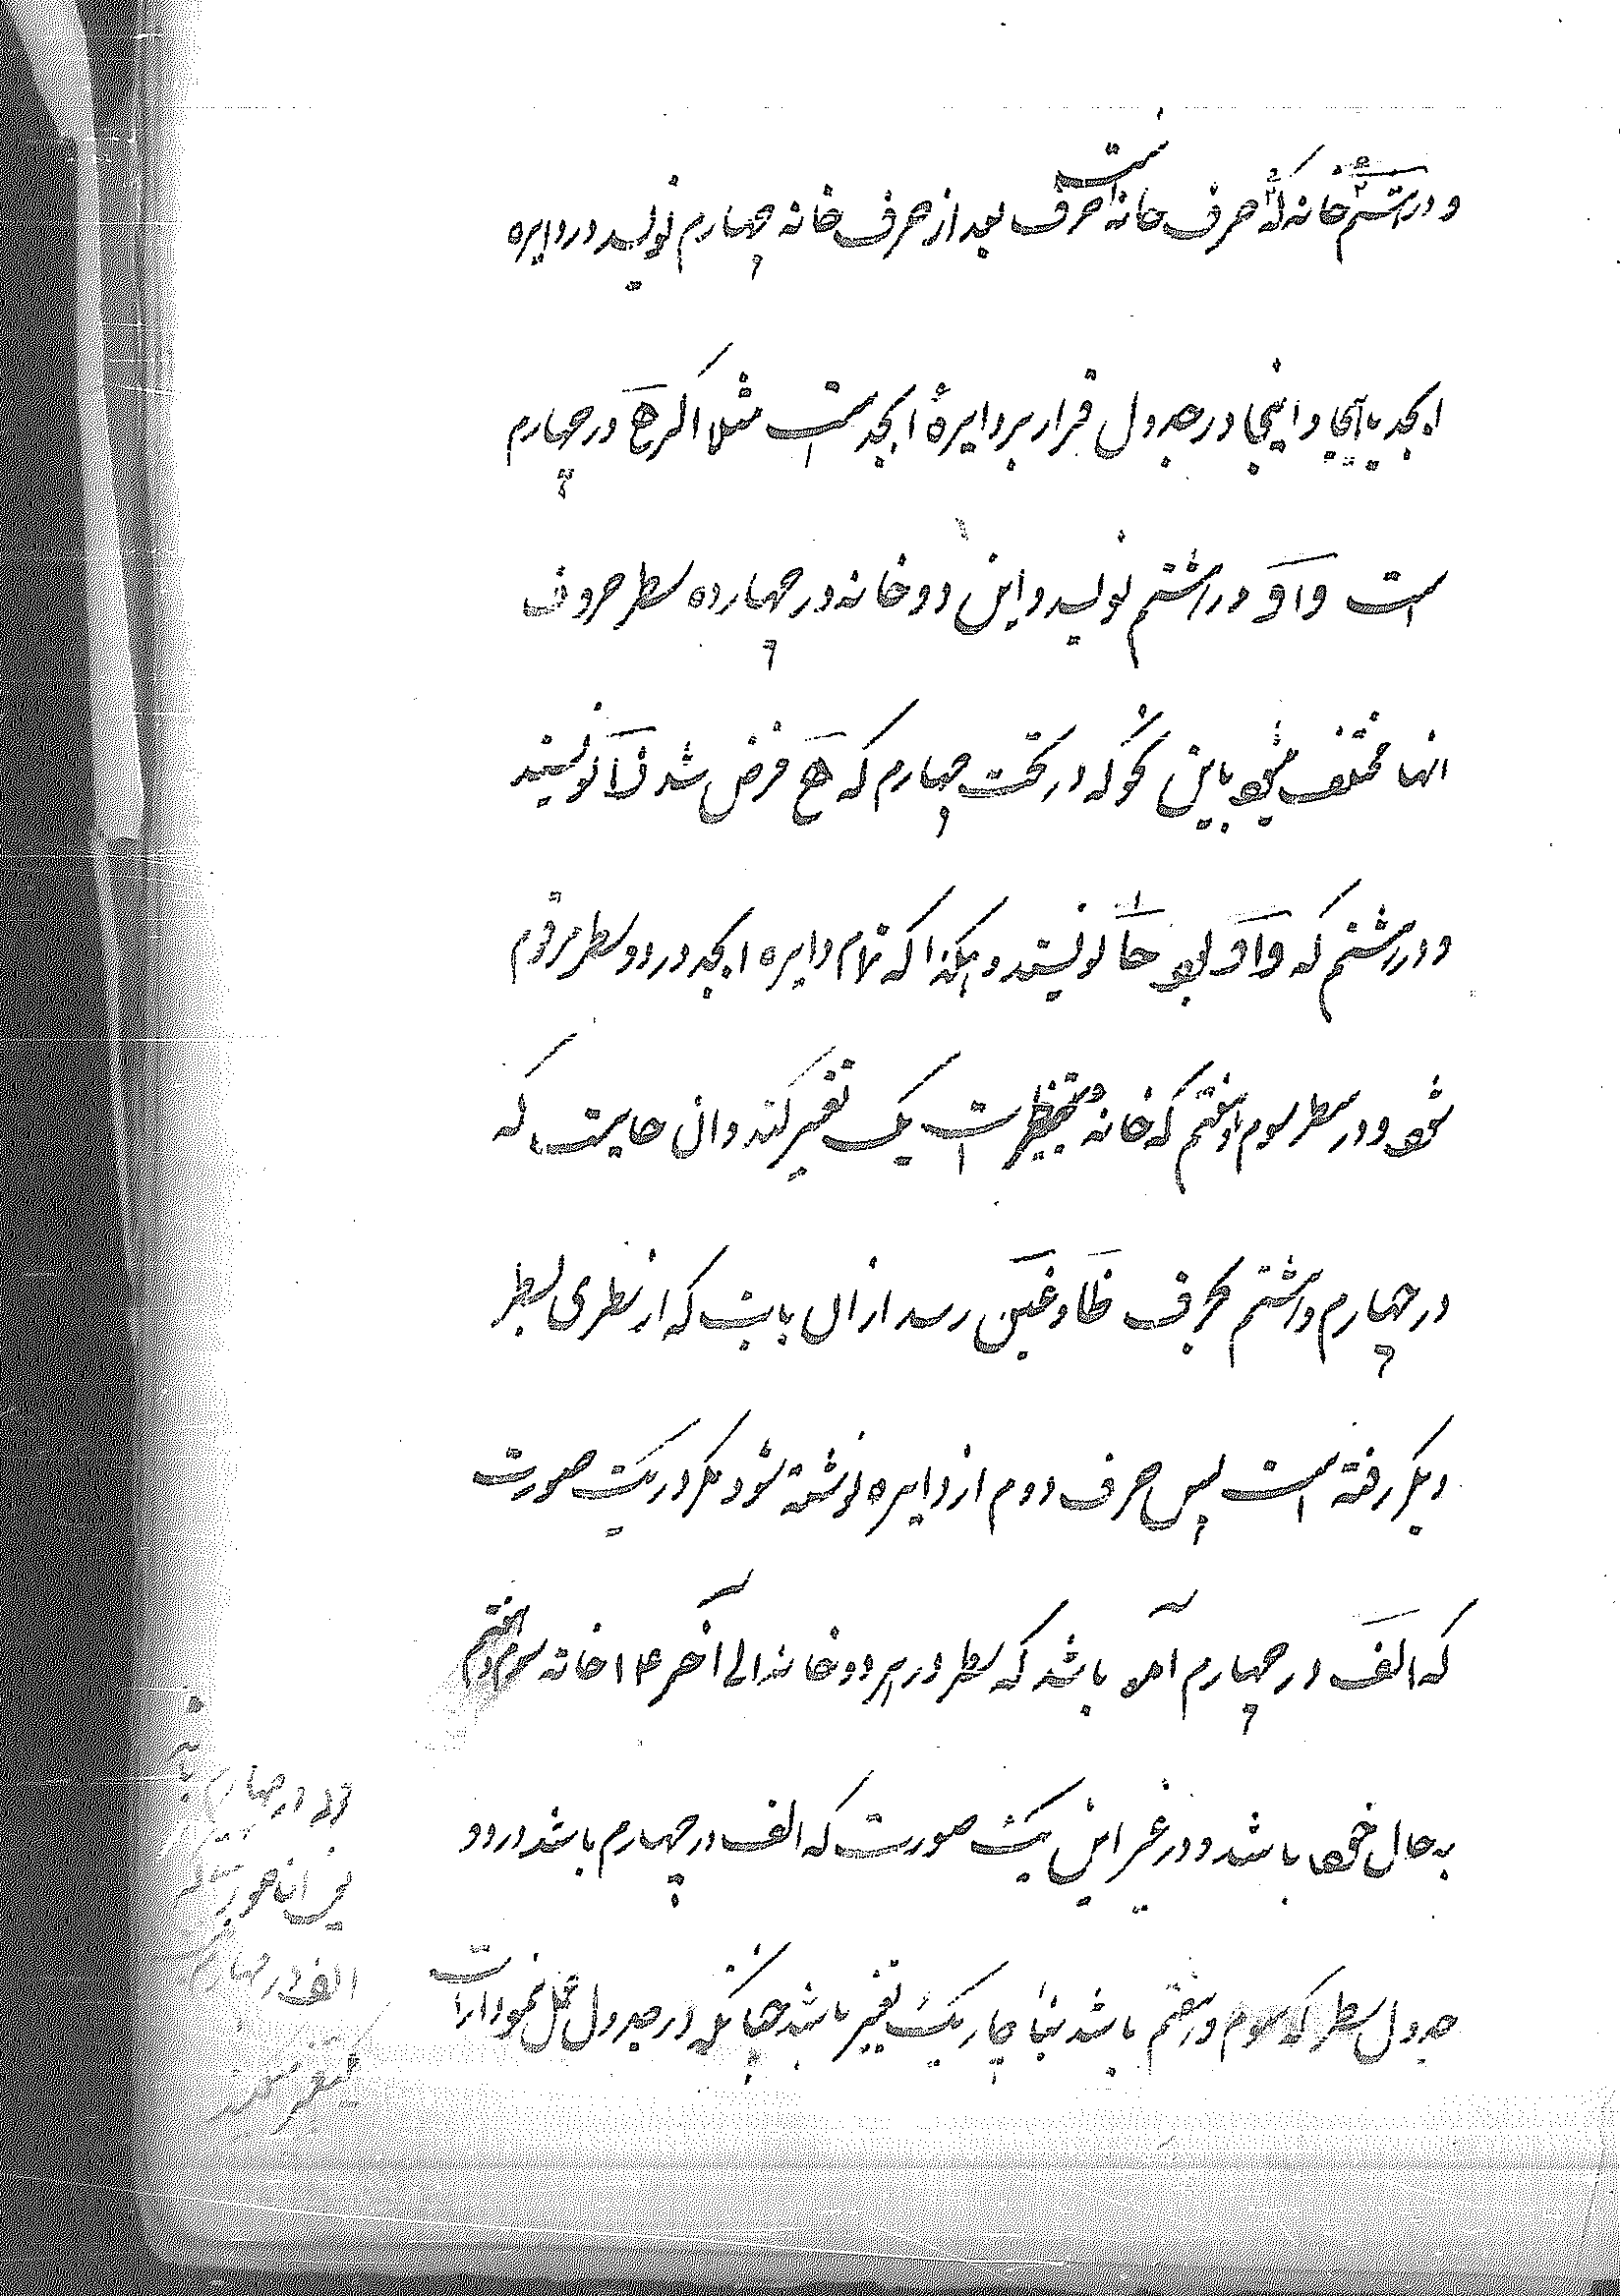 و در هشتم خانه که حرف خانه است حرف بعد از حرف خانه چهارم نویسد در دایره
ابجد یا ایجاد اینجا در جدول قرار بر دایرهٔ ابجد است مثلا اگر هـ در چهارم
است واو در هشتم نویسد و این دو خانه در چهارده سطر حروف
انها مختلف میشود باین نحو که در تحت چهارم که هـ فرض شد زا نویسند
و در هشتم که واو بود حا نویسند و هکذا که تمام دایره ابجد در دو سطر مرقوم
شود و در سطر سوم هفتم که خانه است یک تغییر کند وان جایست که
در چهارم و هشتم بحرف ظا و غین رسد از ان بابت که از سطری بسطر
دیگر رفته است پس حرف دوم از دایره نوشته شود مگر در یک صورت
که الف در چهارم آمده باشد که سطر در هر دو خانه الی آخر ۱۴ خانه سوم و هفتم
به حال خود باشد و در غیر این یک صورت که الف در چهارم باشد در دو
جدول سطر که سوم و هفتم باشد بناچار یک تغییر باشد چنانکه در جدول عمل نموده است
در چهارم
الف در چهارم